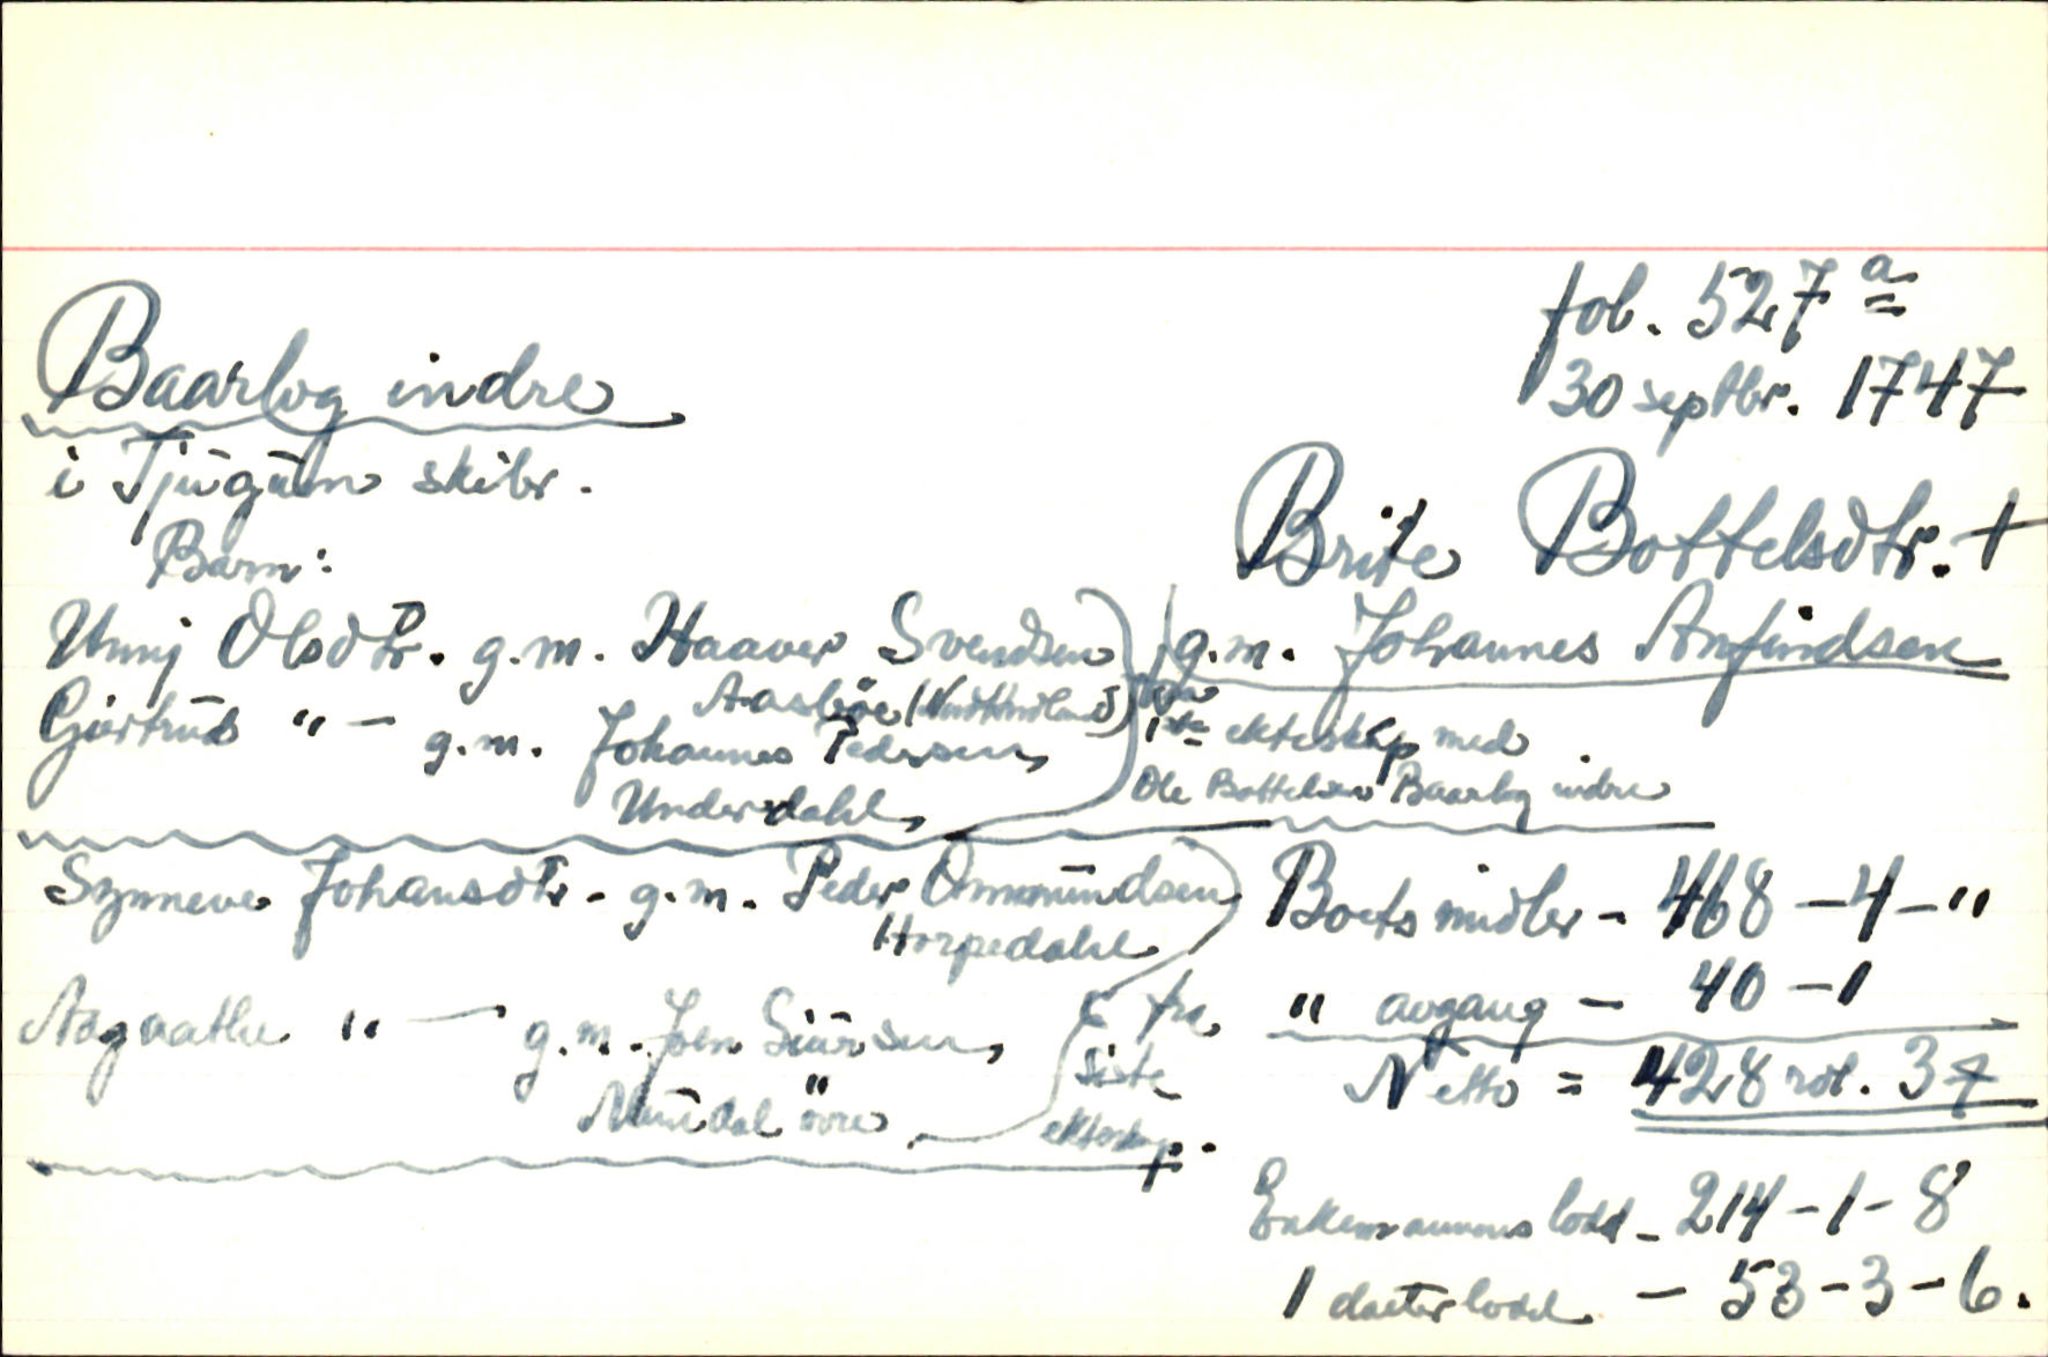 fol. 527 a
30 septbr. 1747
Baarlog indre
i Tjugum skibr.
Brite Bottelsdtr. +
g.m. Johannes Anfindsen
Barn:
Unnj Olsdtr. g.m. Haaver Svendsen
Aasböe
Giertrud " — g.m. Johannes Pedersen,
Underdahl,
1ste ekteskap med
Ole Bottelsen Baarlog indre
Synneve Johansdtr. g.m. Peder Ommundsen
Horpedahl
Aagaathe " — g.m. Joen Siursen,
Mundal övre
fra
siste
ekteskap.
Boets midler - 468 - 4 - "
" avgang - 40 - 1
Netto = 428 rdl. 3 ¥
Enkemannens lodd - 214 - 1 - 8
1 datterlodd - 53 - 3 - 6.